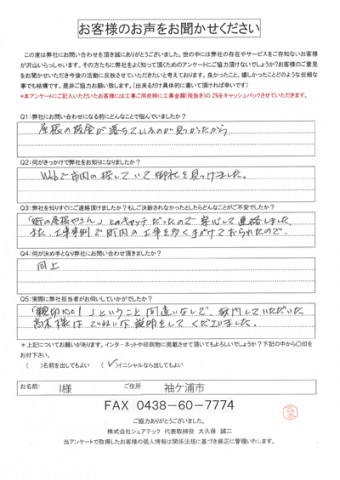 お客様のお声をお聞かせください
この度は弊社にお問い合わせを頂き誠にありがとうございました。世の中には弊社の存在やサービスをご存知ないお客様
が沢山いらっしゃいます。その方たちに弊社をよく知って頂くためのアンケートにご協力頂けないでしょうか?お客様のご意見
をお聞かせいただき今後の活動に反映させていただきたいと考えております。良かったこと、嬉しかったことどのような些細な
事でも結構です。是非ご協力お願いいたします。(出来るだけ具体的に書いて頂ければ幸いです)
*本アンケートにご記入いただいたお客様には工事ご用命時に工事金額(税抜き)の2%をキャッシュバックさせていただきます。
Q1:弊社にお問い合わせになる前にどんなことで悩んでいましたか?
屋根の板金が落ちているのが見つかったから
Q2:何がきっかけで弊社をお知りになりましたか?
Webで市内の探していて御社を見つけました。
Q3:弊社を知りすぐにご連絡頂けましたか?もしご決断されなかったとしたらどんなことがご不安でしたか?
「街の屋根やさん」とのキャッチだったので安心して連絡しました
また、工事事例で町内の工事を多く手がけておられたので、
Q4:何が決め手となり弊社にお問い合わせ頂けましたか?
同上
Q5:実際に弊社担当者がお伺いしていかがでしたか?
「親切
ということ間違いなしで、訪問していただいた
様はていねいな説明をしてくださいました。
*上記についてお願いがあります。インターネットや印刷物に掲載させて頂いてもよろしいでしょうか?下記の中から〇印を
お付下さい。
( )名前を出してもよい (✓)イニシャルなら出してもよい
お名前: I様 ご住所 袖ケ浦市
FAX 0438-60-7774
ご協力ありがとうございました。
株式会社シェアテック 代表取締役 大久保 誠二
当アンケートで取得したお客様の個人情報は関係法規に基づき厳正に管理いたします。